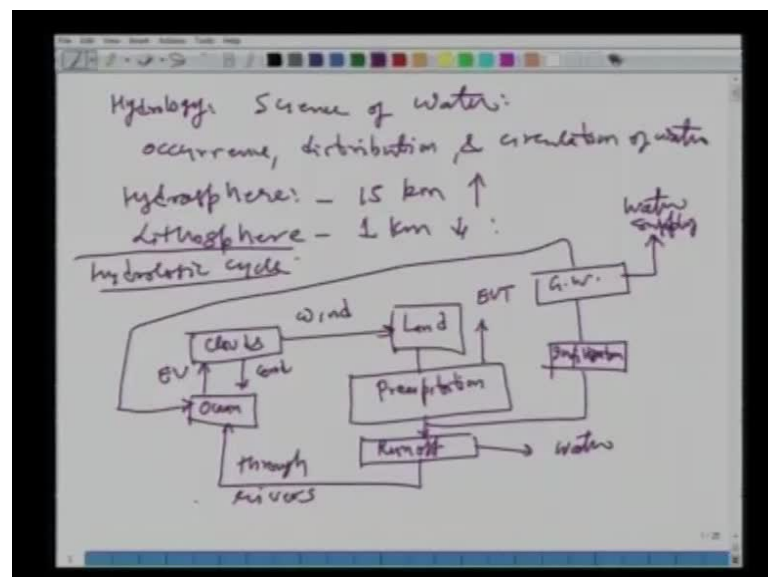 Hydrology: Science of water:
occurrence, distribution, & circulation of water
Hydrosphere: - 15 km ↑
Lithosphere - 1 km ↓ :
Hydrologic cycle
water supply
G.W.
EVT
wind
Land
Clouds
Infiltration
EV
Cond
Precipitation
Ocean
Runoff
water
through
rivers
1 / 25